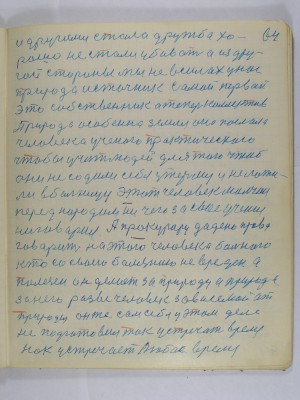 и другими стала дружба хо- 64
рошо не стали убивать а из дру-
гой стороны мы не в силах у нас
природа источник самый первый
Это собственник а теперь коллектив
Природа особенно земля она послала
человека ученого практического
чтобы учить людей для того чтоб
они не садили себя у тюрму и не ложи-
ли в больницу этот человек молчит
перед народом ни чего за свое учении
не говорил А прокурору дадено право
говорить на этого человека больного
кто со своею болезнью не вреден а
полезен он делает за природу и природа
за него разве человек зависемой от
природы он же сам себя у этом деле
не подготовил так устречать время
как устречает Любое время